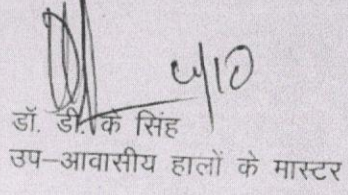 4/10
डॉ. डी. के सिंह
उप-आवासीय हालों के मास्टर